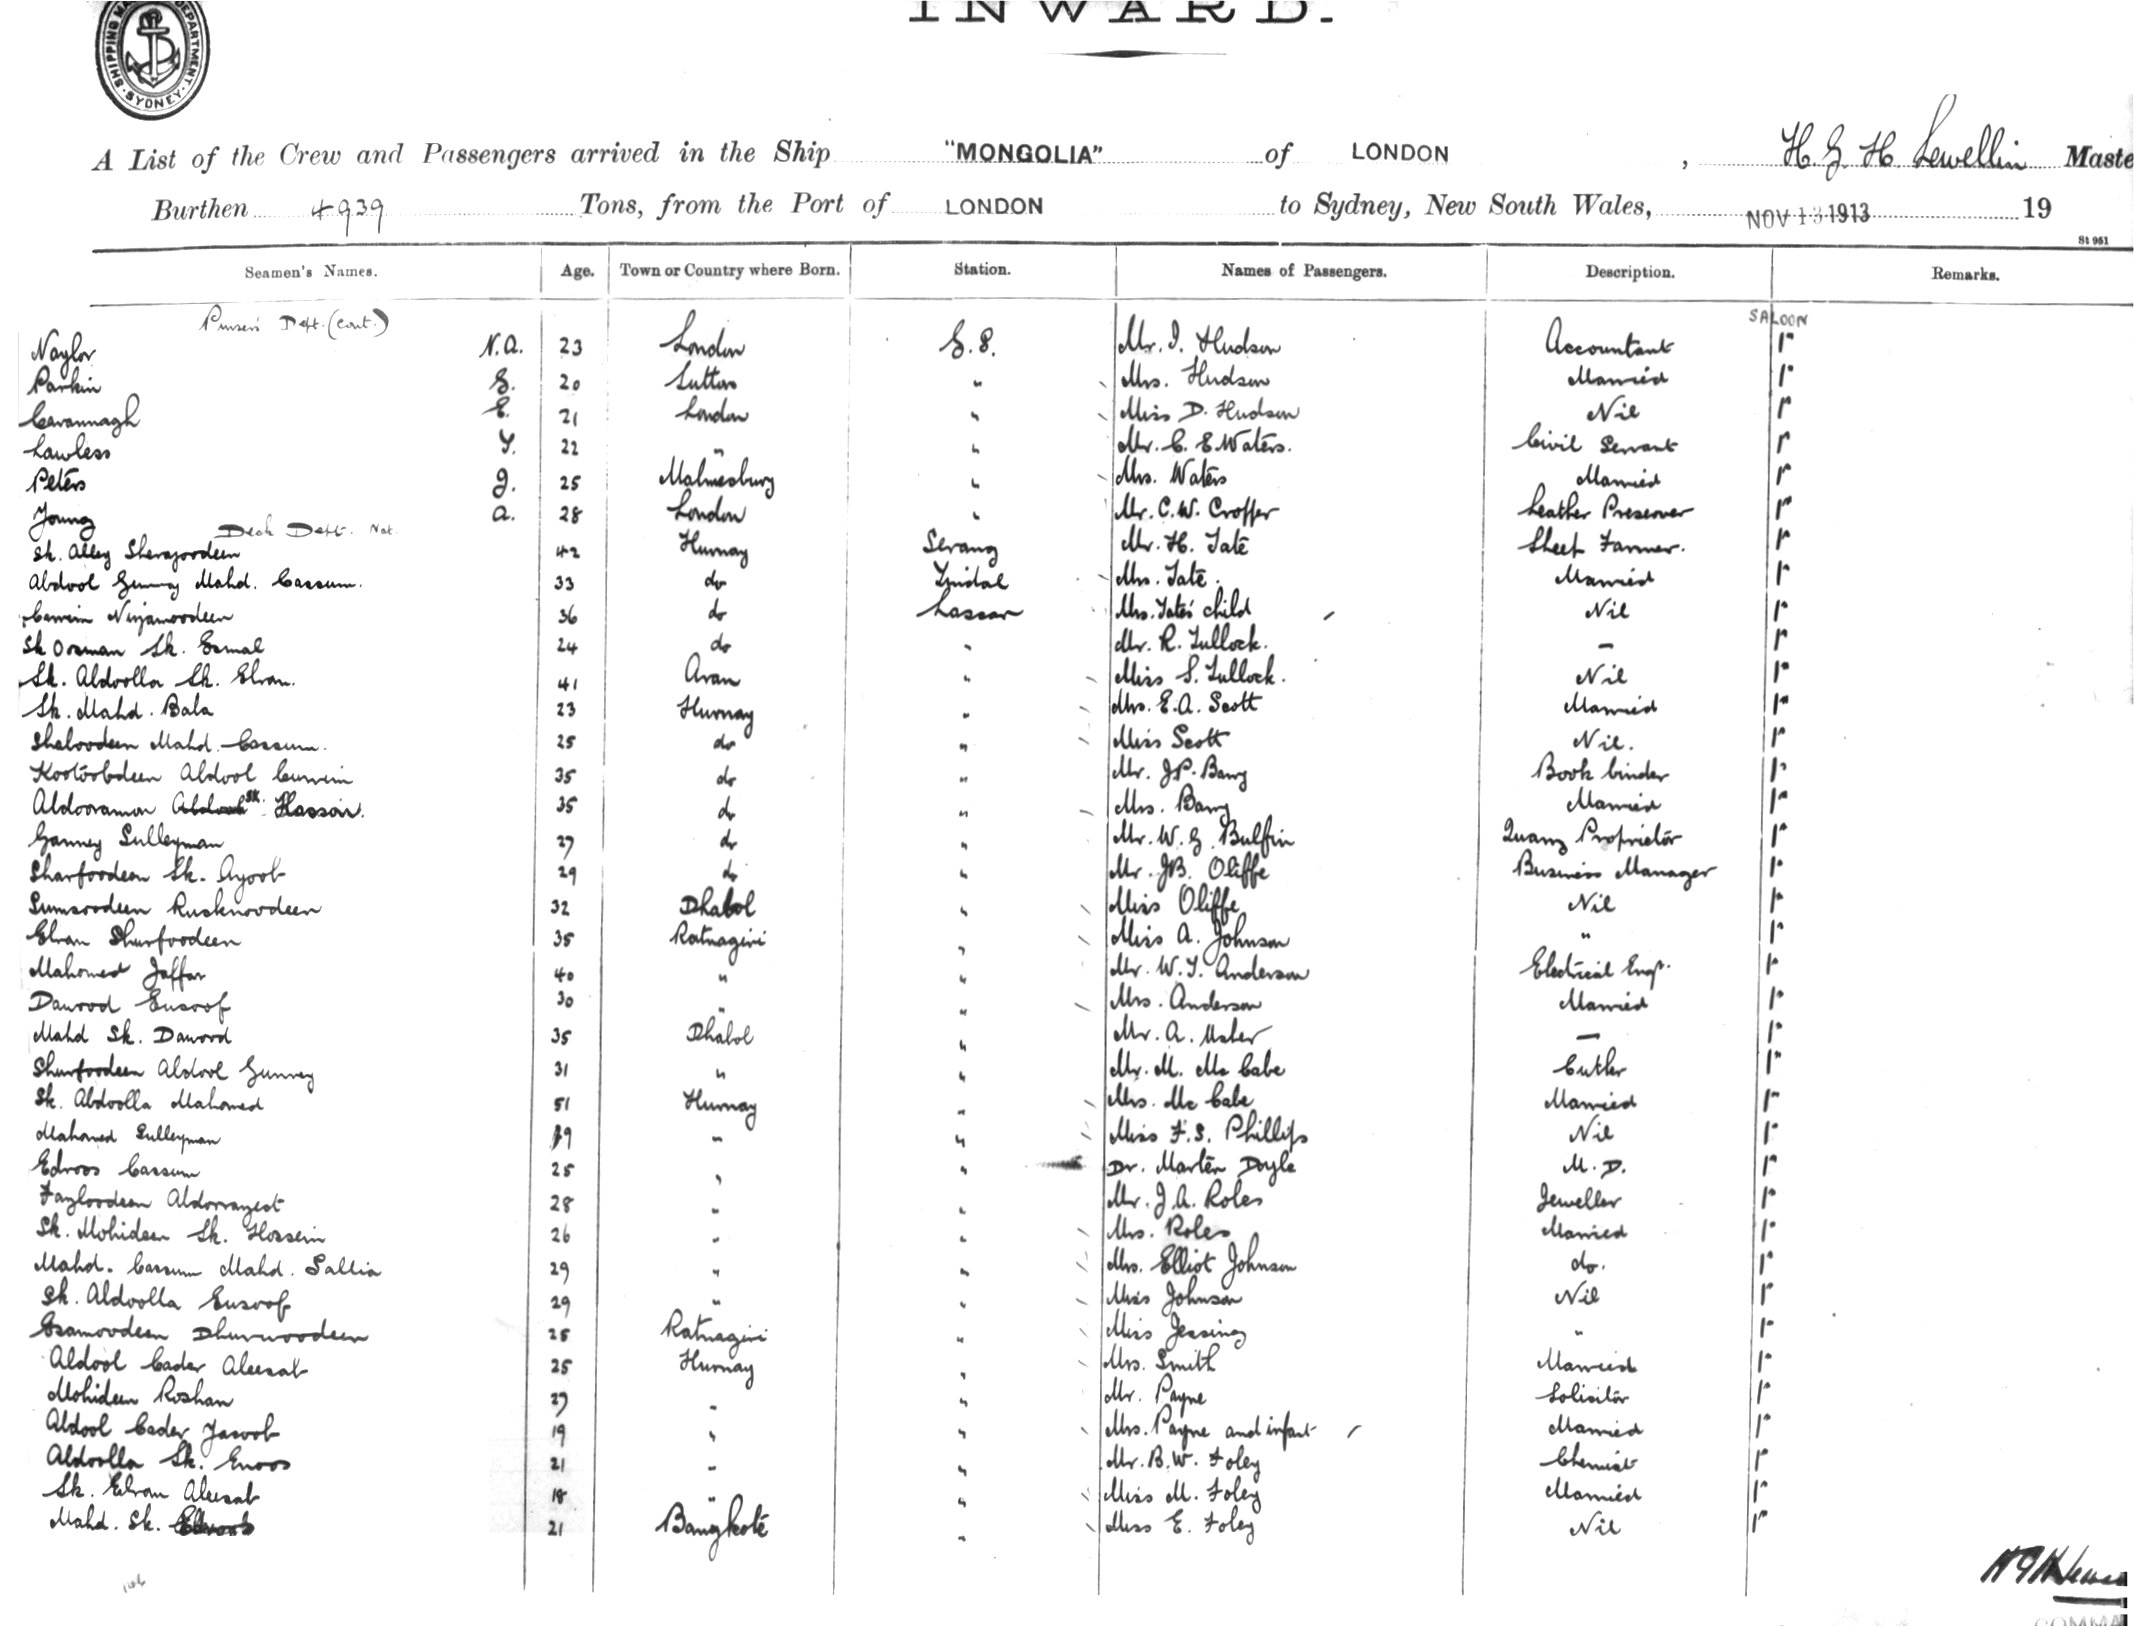 INWARD.
SHIPPING MA DEPARTMENT. SYDNEY.
A List of the Crew and Passengers arrived in the Ship "MONGOLIA" of LONDON, H. G. H. Lewellin Maste
Burthen 4939 Tons, from the Port of LONDON to Sydney, New South Wales, NOV 13 1913 19
St 951
Seamen's Names. Age. Town or Country where Born. Station. Names of Passengers. Description. Remarks.
Purser's Dept. (cont.) SALOON
Naylor N.A. 23 London G.S. Mr. I. Hudson Accountant
Parkin G. 20 Sutton " Mrs. Hudson Married
Cavannagh E. 21 London " Miss D. Hudson Nil
Lawless T. 22 " " Mr. C. E. Waters. Civil Servant
Peters J. 25 Malmesbury " Mrs. Waters Married
Young A. 28 London " Mr. C. W. Croffer Leather Preserver
Deck Dept. Nat.
Sk. Alley Sherajoordeen 42 Hurnay Serang Mr. H. Tate Sheep Farmer.
Abdool Gunny Mahd. Cassum. 33 do Tindal Mrs. Tate. Married
Ninjamoordeen 36 do Lascar Mrs. Tate's child Nil
Sk Osman Sk. Esmal 24 do " Mr. R. Tullock. —
Sk. Abdoolla Sk. Ebram. 41 Aran " Miss S. Tullock. Nil
Sk. Mahd. Bala 23 Hurnay " Mrs. E. A. Scott Married
Shaboodeen Mahd. Cassum. 25 do " Miss Scott Nil.
Kootoobdeen Abdool 35 do " Mr. J. P. Barry Book binder
Abdooramon Sk. Hassan. 35 do " Mrs. Barry Married
Ganney Sulleyman 27 do " Mr. W. G. Bulfin Quarry Proprietor
Sharfoordeen Sk. Ayoob 29 do " Mr. J B. Oliffe Business Manager
Sumsoodeen Rusknoodeen 32 Dhabol " Miss Oliffe Nil
Ebram Shurfoodeen 35 Ratnagiri " Miss A. Johnson "
Mahomed Jaffar 40 " " Mr. W. T. Anderson Electrical Engr.
Dawood Eusoof 30 " " Mrs. Anderson Married
Mahd Sk. Dawood 35 Dhabol " Mr. A. Maher —
Shurfoodeen Abdool Gunney 31 " " Mr. M. Mc Cabe Cutler
Sk. Abdoolla Mahomed 51 Hurnay " Mrs. Mc Cabe Married
Mahomed Sulleyman 19 " " Miss F. S. Phillips Nil
Edroos Cassum 25 " " Dr. Martin Doyle M. D.
Fazloodeen 28 " " Mr. J. A. Roles Jeweller
Sk. Mohideen Sk. Hossein 26 " " Mrs. Roles Married
Mahd. Cassum Mahd. Sallia 29 " " Mrs. Elliot Johnson do.
Sk. Abdoolla Eusoof 29 " " Miss Johnson Nil
Esamoodeen 25 Ratnagiri " Miss Jessing "
Abdool Cader Aleesab 25 Hurnay " Mrs. Smith Married
Mohideen Roshan 27 " " Mr. Payne Solicitor
Abdool Cader Jacoob 19 " " Mrs. Payne and infant Married
Abdoolla Sk. Enoos 21 " " Mr. B. W. Foley Chemist
Sk. Ebram Aleesab 18 " " Miss M. Foley Married
Mahd. Sk. 21 Bangkote " Miss E. Foley Nil
COMMA